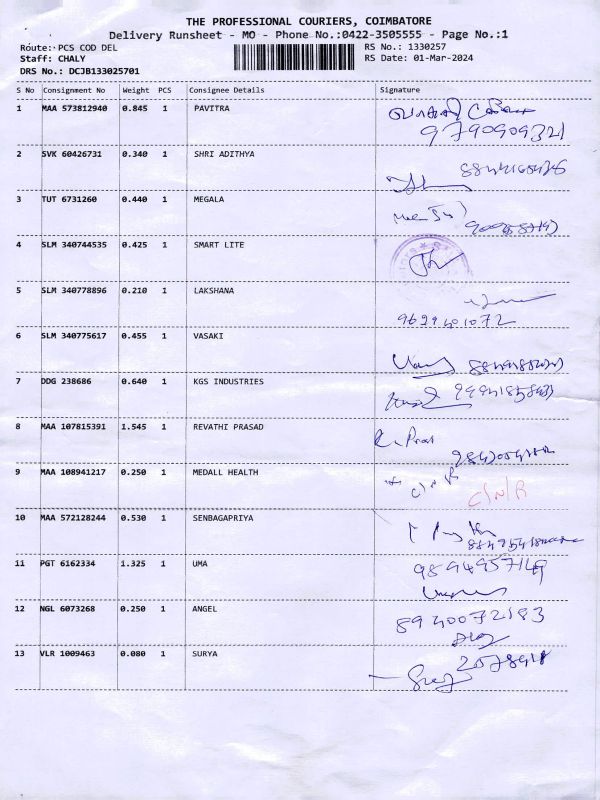 THE PROFESSIONAL COURIERS, COIMBATORE
Delivery Runsheet - MO - Phone No.:0422-3505555 - Page No.:1
Route: PCS COD DEL RS No.: 1330257
Staff: CHALY RS Date: 01-Mar-2024
DRS No.: DCJB133025701
S No Consignment No Weight PCS Consignee Details Signature
1 MAA 573812940 0.845 1 PAVITRA
9790909321
2 SVK 60426731 0.340 1 SHRI ADITHYA
3 TUT 6731260 0.440 1 MEGALA
4 SLM 340744535 0.425 1 SMART LITE
5 SLM 340778896 0.210 1 LAKSHANA
9629401072
6 SLM 340775617 0.455 1 VASAKI
7 DDG 238686 0.640 1 KGS INDUSTRIES
8 MAA 107815391 1.545 1 REVATHI PRASAD
9 MAA 108941217 0.250 1 MEDALL HEALTH C/N/R C/N/R
10 MAA 572128244 0.530 1 SENBAGAPRIYA
11 PGT 6162334 1.325 1 UMA 9894957149
12 NGL 6073268 0.250 1 ANGEL 8940072183
13 VLR 1009463 0.080 1 SURYA